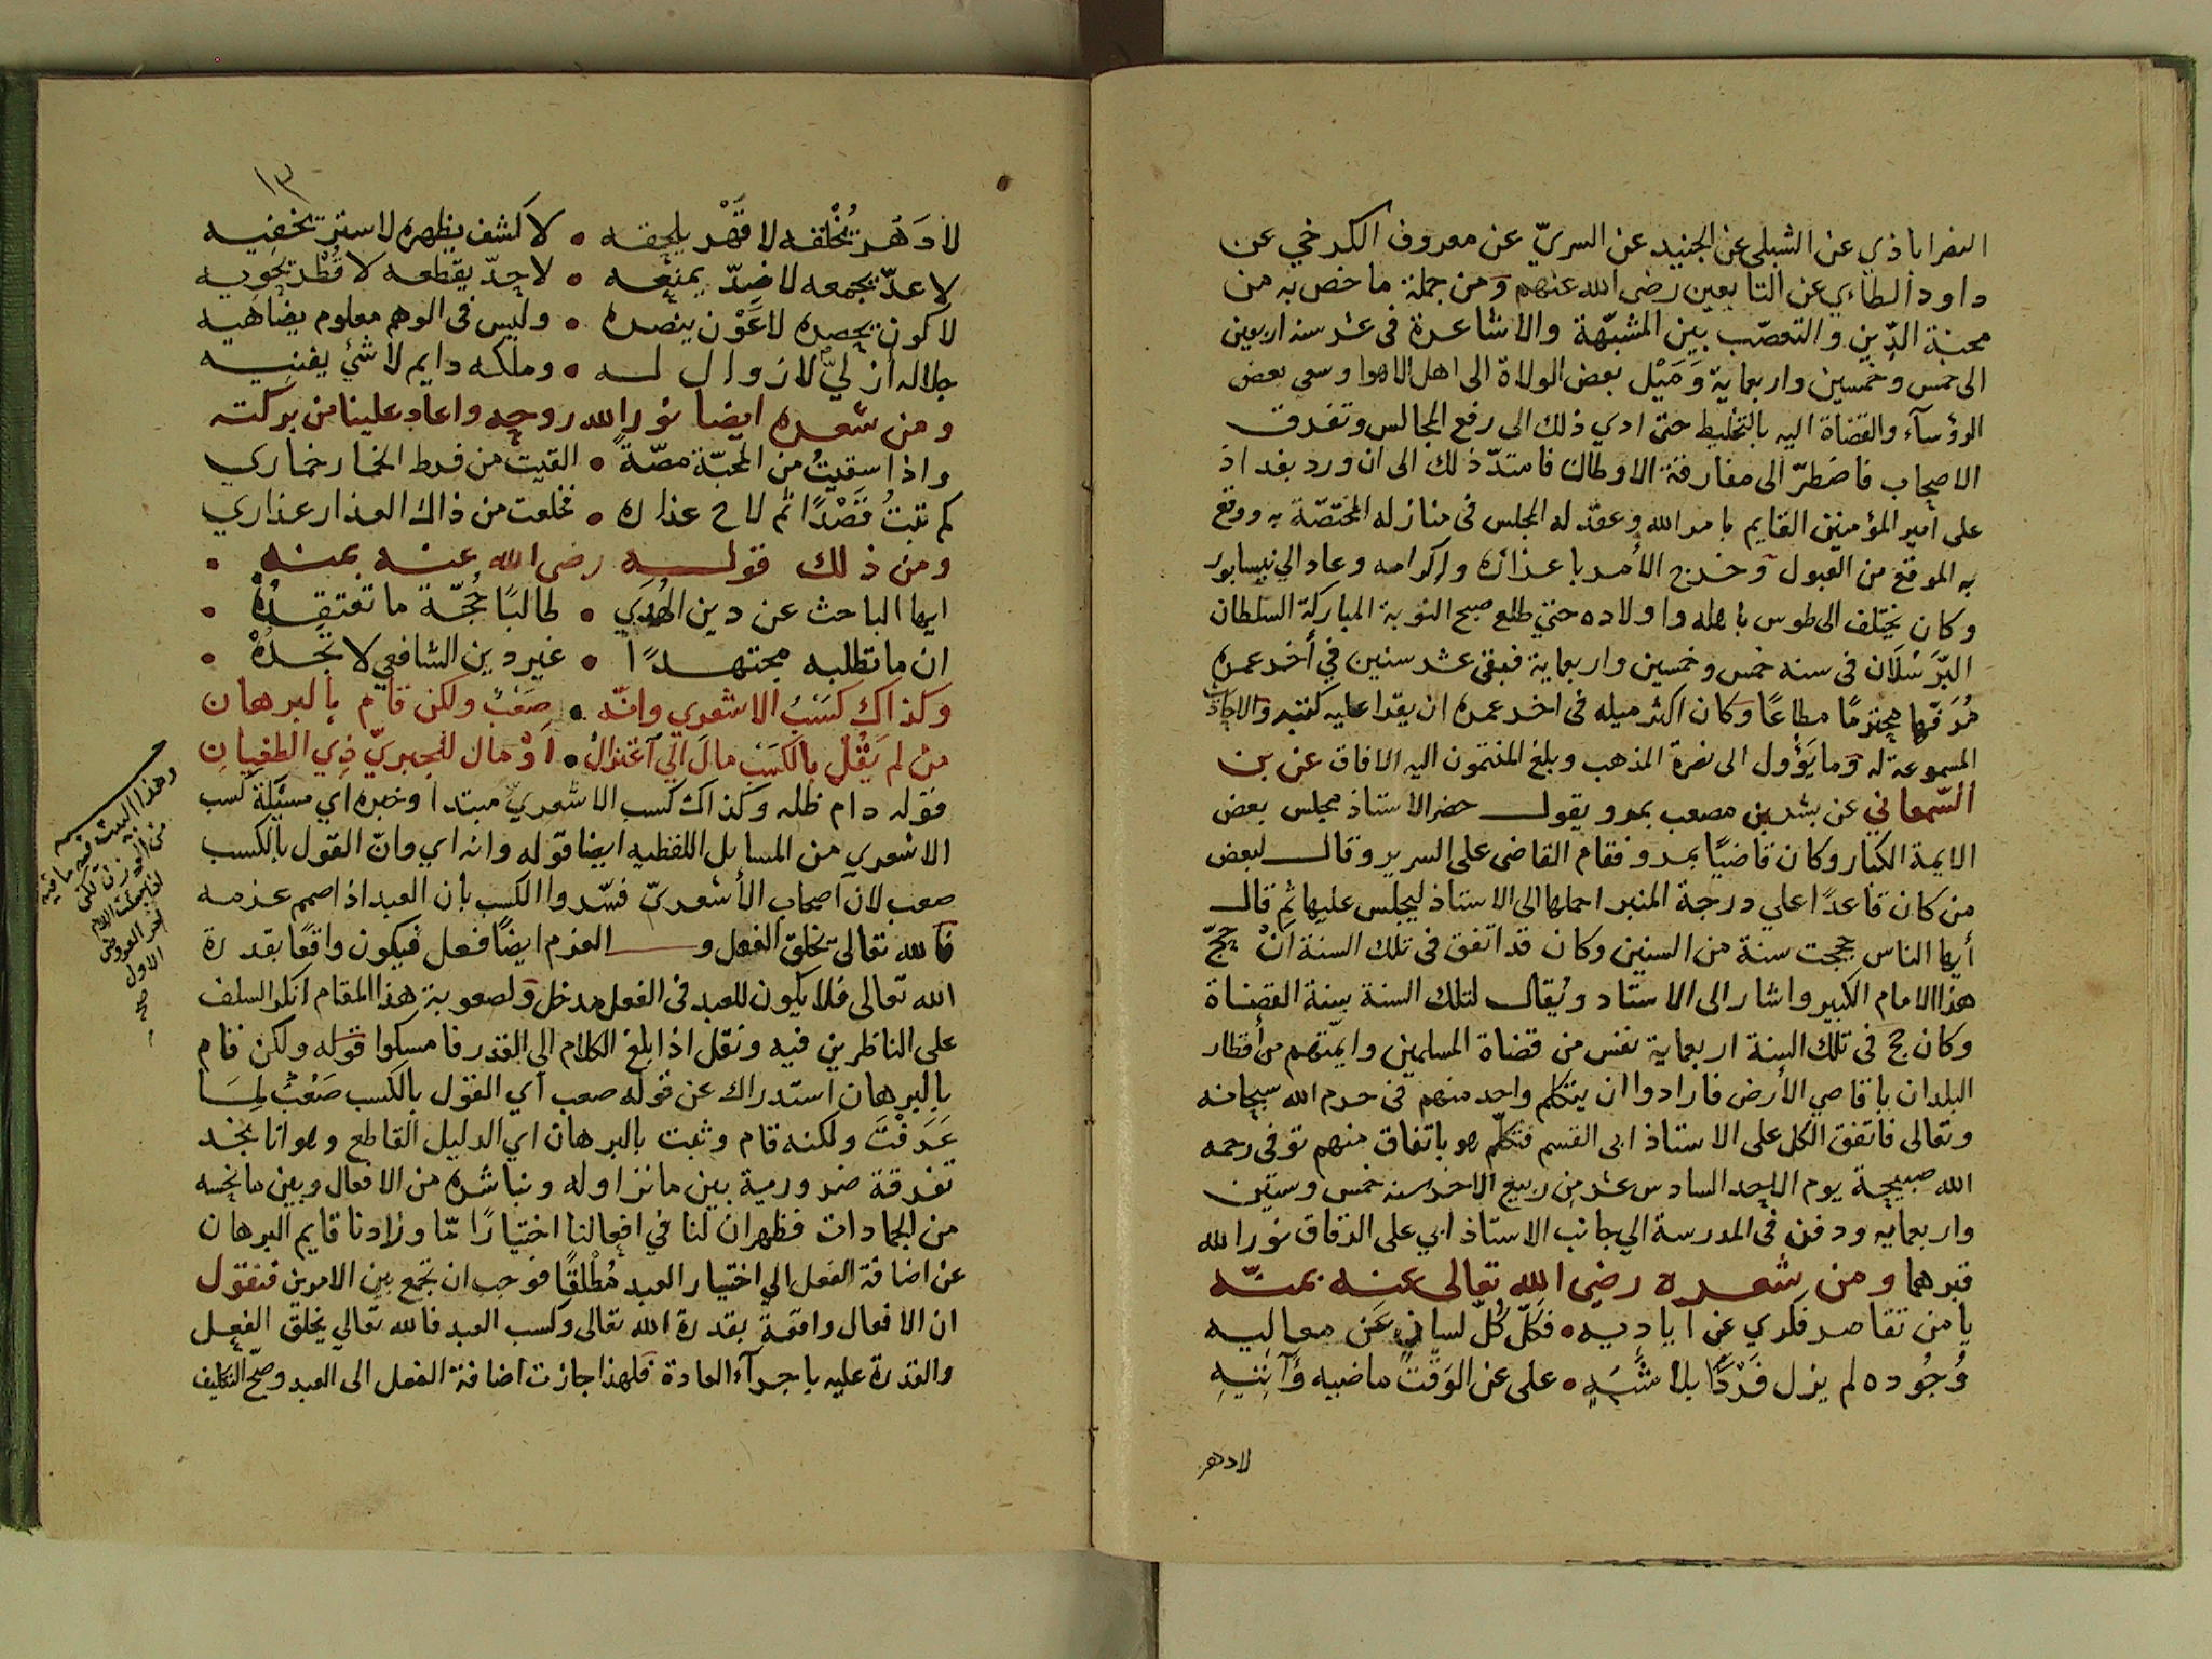 النصراباذي عن الشبلي عن الجنيد عن السريّ عن معروف الكرخي عن
داود الطاءي عن التابعين رضى الله عنهم ومن جملة ما خص به من
محنة الدّين والتعصّب بين المشبّهة والاشاعرة فى عشر سنه اربعين
الى خمس وخمسين واربعماية وَمَيْل بعض الولاة الى اهل الاهوا وسعى بعض
الرؤسآء والقضاة اليه بالتخليط حتى ادي ذلك الى رفع المجالس وتفرق
الاصحاب فاضطرّ الى مفارقة الاوطان فامتدّ ذلك الى ان ورد بغداذ
على امير المؤمنين القايم بامر الله وعقد له المجلس فى منازله المختصّة به ووقع
به الموقع من القبول وخرج الأمر باعزازه واكرامه وعاد الي نيسابور
وكان يختلف الى طوس باهله واولاده حتي طلع صبح النوبة المباركة السلطان
البّرَسْلَان فى سنه خمس وخمسين واربعماية فبقى عشر سنين في أخر عمره
مُرَفّها محترمًا مطاعًا وكان اكثر ميله فى اخر عمره ان يقرا عليه كتبه والاحاديث
المسموعة له وما يَؤُول الى نصرة المذهب وبلغ المنتمون اليه الافاق عن بن
السّمعاني عن بشر بن مصعب بمرو يقول حضر الاستاذ مجلس بعض
الايمة الكبار وكان قاضيًا بمرو فقام القاضى على السرير وقال لبعض
من كان قاعدًا علي درجة المنبر احملها الى الاستاذ ليجلس عليها ثم قال
أيها الناس حججت سنة من السنين وكان قد اتفق فى تلك السنة انْ حجّ
هذا الامام الكبير واشار الى الاستاد ويُقال لتلك السنة سنة القضاة
وكان حج فى تلك السنة اربعماية نفس من قضاة المسلمين وايمّتهم من أقطار
البلدان باقاصي الأرض فارادوا ان يتكلم واحد منهم فى حرم الله سبحانه
وتعالى فاتفق الكل على الاستاذ ابى القسم فتكلّم هو باتفاق منهم توفى رحمه
الله صبيحة يوم الاحد السادس عشر من ربيع الاخر سنه خمس وستين
واربعمايه ودفن فى المدرسة الي جانب الاستاذ ابي على الدقاق نور الله
قبرهما ومن شعره رضي الله تعالى عنه بمنّه
يا من تقاصر فكري عن اياديه • فكلّ كُلّ لسانٍ عَن معاليه
وُجُوده لم يزل فَرْدًا بلا شَبَهٍ • على عن الوَقْت ماضيه وَآتِيهِ
لا دهر
١٣
لا دَهْر يُخْلقه لا قَهْر يلحقه • لا كشف يظهره لا ستر تخفيه
لا عدّ يجمعه لا ضِدّ يمنعه • لا حِدّ يقطعه لا قُطْر يحويه
لا كون يحصره لا عَوْن ينصره • وليس فى الوهم معلوم يضاهيه
جلاله أزليٌّ لا زوال له • وملكه دايم لا شئ يفنيه
ومن شعره ايضا نور الله روحه واعاد علينا من بركته
واذا سقيتُ من المحبّة مصّةً • القيت من فرط الخمار خماري
كم تبتُ قَصْدًا ثم لاح عذاره • فخلعت من ذاك العذار عذاري
ومن ذلك قوله رضى الله عنه بمنه •
ايها الباحث عن دين الهُدَي • طالبًا حُجّة ما تعتقِدُهْ •
ان ما تطلبه مجتهدًا • غير دين الشافعي لا تجدُهْ •
وكذاك كَسْبُ الاشعري وانّه • صَعْبٌ ولكن قام بالبرهان
من لم يَقُل بالكَسْبِ مالَ الي اعتزال • اوْ مال للجبريّ ذي الطغيانِ
قوله دام ظله وكذاك كسب الاشعري مبتدا وخبره اي مسئلة كسب
الاشعري من المسايل اللفظيه ايضا قوله وانه اي وانّ القول بالكسب
صعب لان اصحاب الأشعريّ فسّروا الكسب بان العبد اذا صمم عزمه
فالله تعالى يخلق الفعل و العزم ايضًا فعل فيكون واقعًا بقدرة
الله تعالى فلا يكون للعبد فى الفعل مدخل ولصعوبة هذا المقام انكر السلف
على الناظرين فيه ونقل اذا بلغ الكلام الي القدر فامسكوا قوله ولكن قام
بالبرهان استدراك عن قوله صعب اي القول بالكسب صَعْبٌ لِمَا
عَرَفْتَ ولكنه قام وثبت بالبرهان اي الدليل القاطع وهو انا نجد
تفرقة ضرورية بين ما نزاوله ونباشره من الافعال وبين ما نحسه
من الجمادات فظهر ان لنا في افعالنا اختيارًا مّا وزادنا قايم البرهان
عن اضافة الفعل الي اختيار العبد مُطْلقًا فوجب ان نجمع بين الامرين فنقول
ان الافعال واقعة بقدرة الله تعالى وكسب العبد فالله تعالي يخلق الفعل
والقدرة عليه باجرآء العادة فلهذا جازت اضافة الفعل الى العبد وصحّ التكليف
وهذا البيت فيه ما فيه
من الوزن لكن
اخر العروض
الاول صح